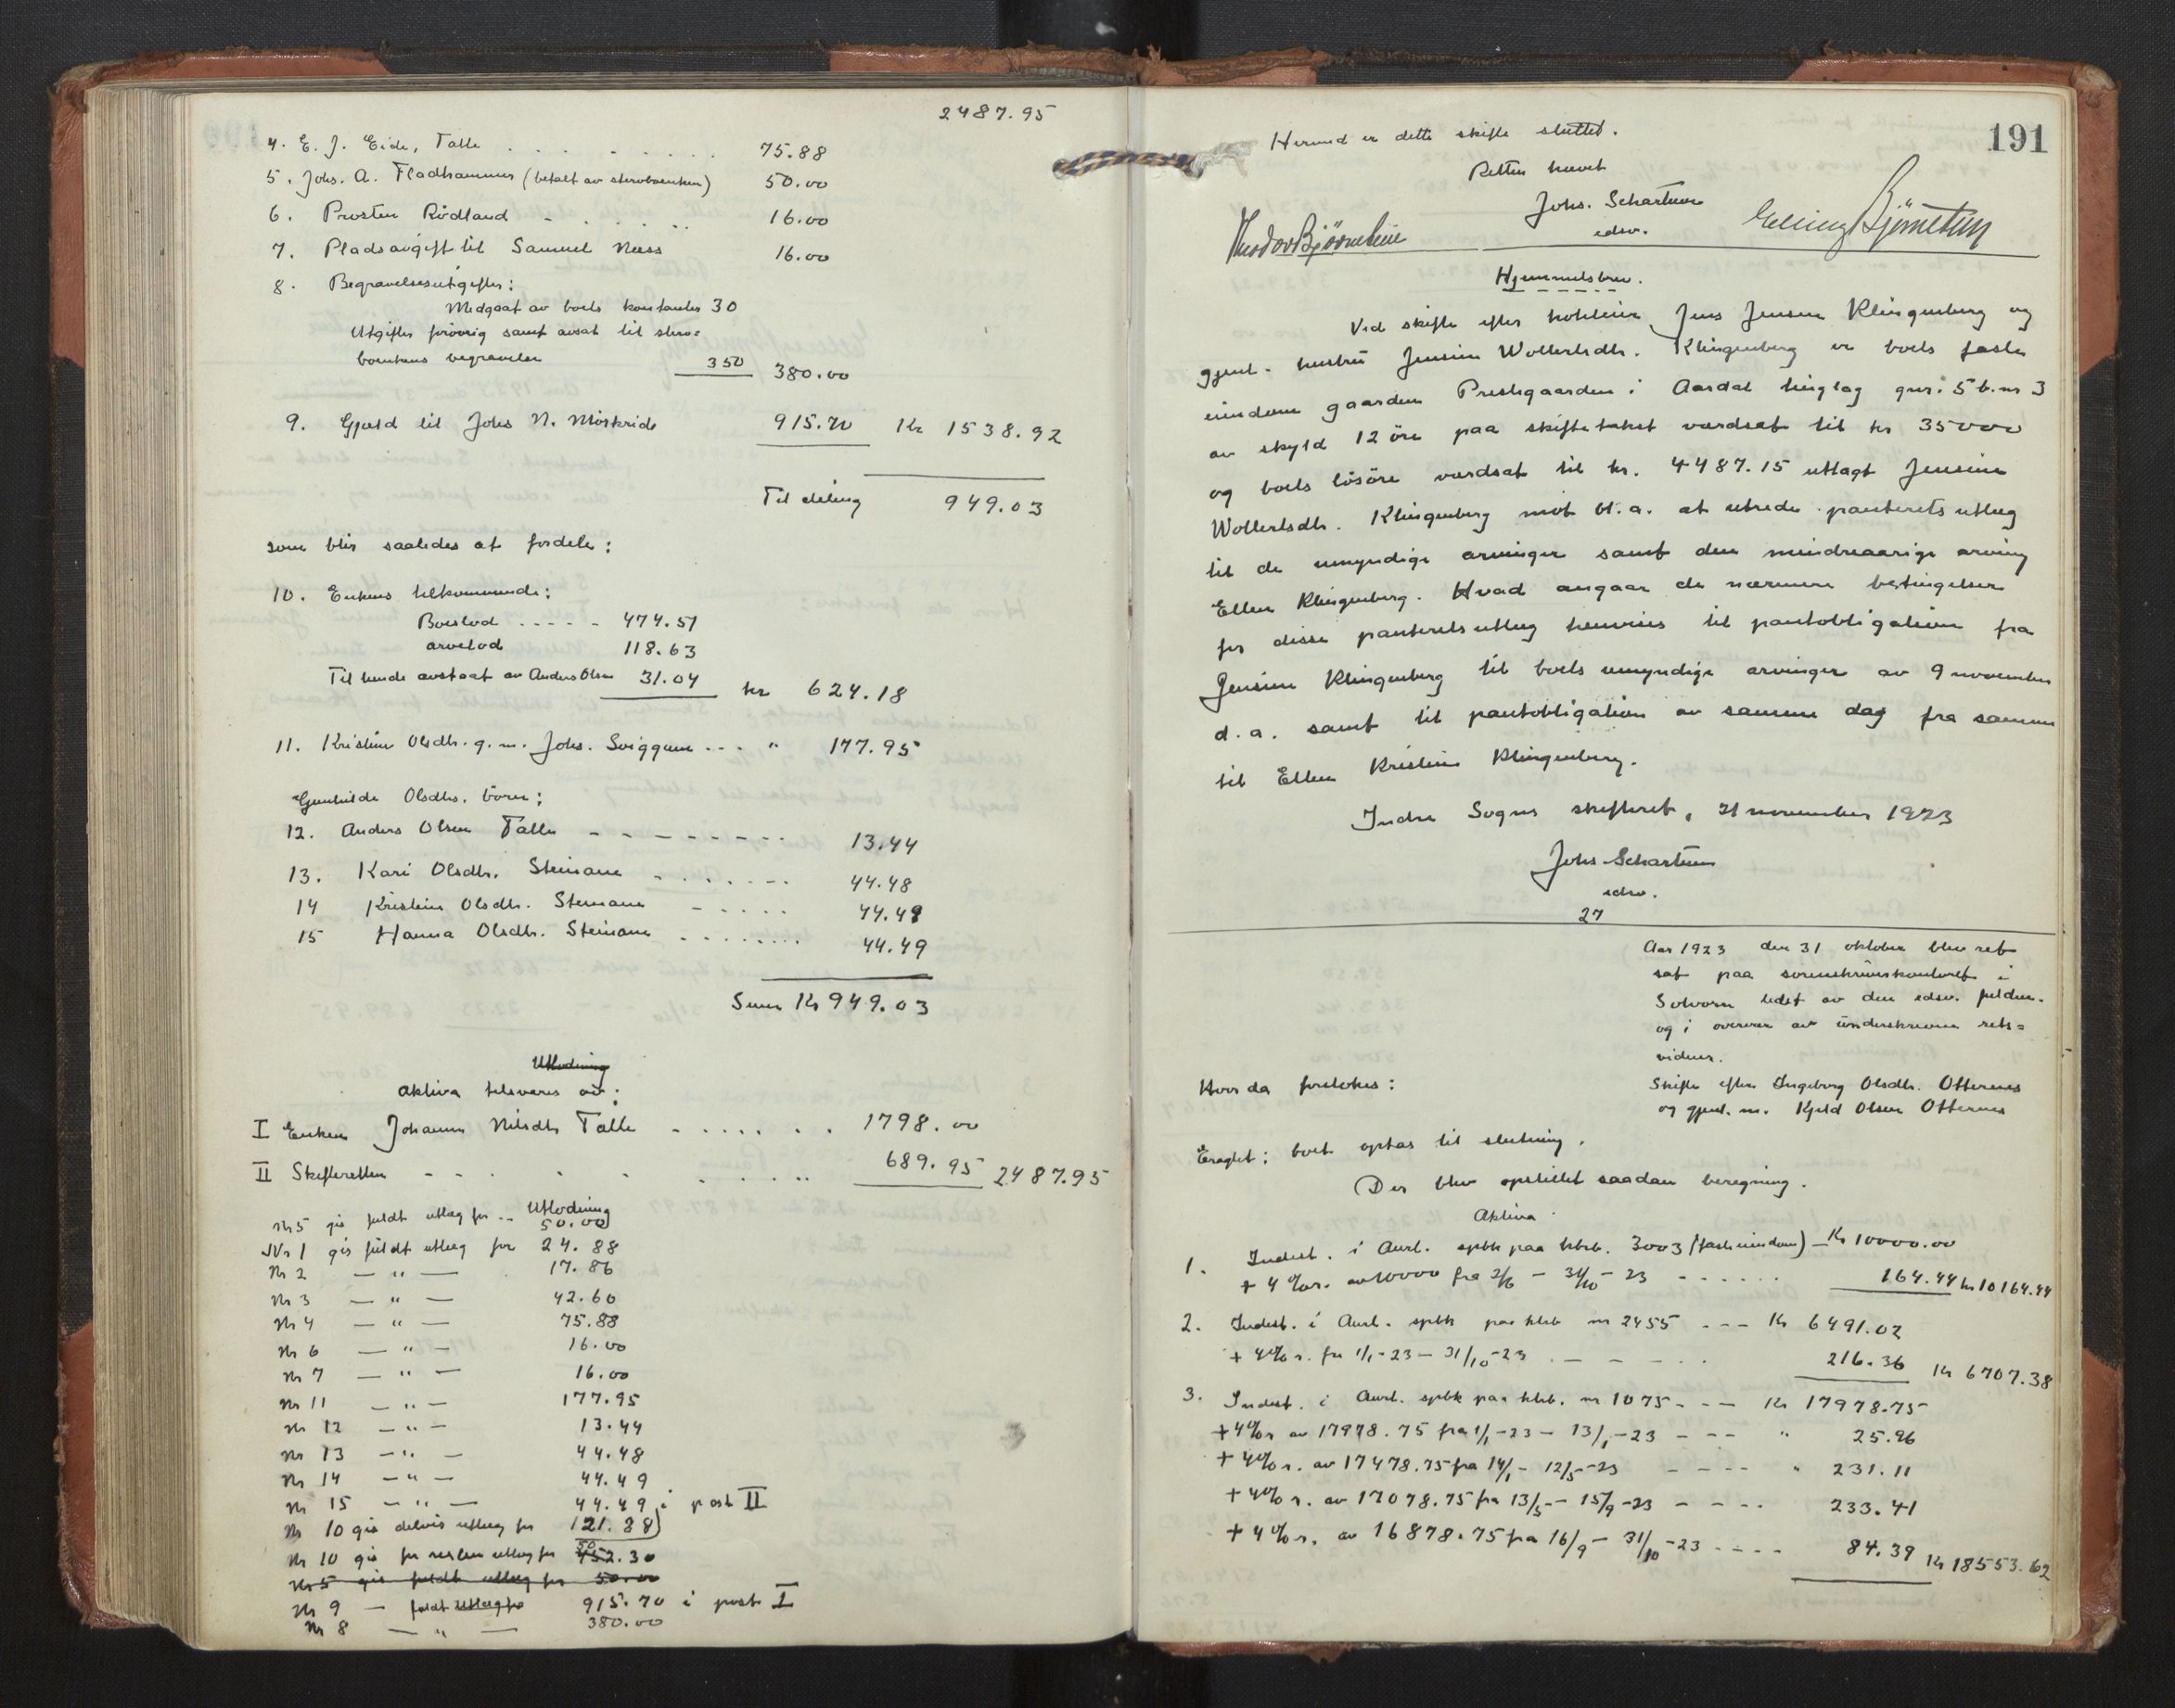 2487.95
4. E. J. Eide, Talle . . . . . . 75.88
5. Johs. A. Fladhammer (betalt av stervboenken) 50.00
6. Prosten Rødland - . . . . 16.00
7. Pladsavgift til Samuel Næss 16.00
8. Begravelsesutgifter:
Medgaat av boets kontanter 30
Utgifter forøvrig samt avsat til sterv=
boenkens begravelse 350 380.00
9. Gjæld til Johs N. Mørkrids 915.70 Kr 1538.92
Til deling 949.03
som blir saaledes at fordele:
10. Enkens tilkommende:
Boeslod . . . . . 474.51
arvelod 118.63
Til hende avstaat av Anders Olsen 31.04 kr 624.18
11. Kristine Olsdtr. g. m. Johs. Sviggum . . . " 177.95
Gunhilda Olsdtrs. børn:
12. Anders Olsen Talle - - - - - - - - 13.44
13. Kari Olsdtr. Steinane - . . . . . - 44.48
14 Kristine Olsdtr. Steinane - . . . . 44.49
15 Hanna Olsdtr. Steinane . . . . . . . . 44.49
Sum Kr 949.03
Utlodning
Aktiva tilsvares av:
I Enken Johanne Nilsdtr Talle - . . . . . 1798.00
II Skifteretten - - . . . . . . 689.95 2487.95
Utlodning
Nr 5 gis fuldt utlæg for .. 50.00
Nr 1 gis fuldt utlæg for 24.88
Nr 2 — " — 17.86
Nr 3 — " — 42.60
Nr 4 — " — 75.88
Nr 6 — " — 16.00
Nr 7 — " — 16.00
Nr 11 — " — 177.95
Nr 12 — " — 13.44
Nr 13 — " — 44.48
Nr 14 — " — 44.49
Nr 15 — " — 44.49 i post II
Nr 10 gis delvis utlæg for 121.88
Nr 10 gis for resten utlæg for 502.30
Nr 5 gis fuldt utlæg for 50.00
Nr 9 — fuldt utlæg for 915.70 i post I
Nr 8 — " — 380.00
191
Hermed er dette skifte sluttet.
Retten hævet
Johs. Schartum
edsv.
Theodor Bjørnetun
Elling Bjørnetun
Hjemmelsbrev.
Ved skifte efter hoteleier Jens Jensen Klingenberg og
gjenl. hustru Jensine Wollertsdtr. Klingenberg er boets faste
eiendom gaarden Prestegaarden i Aardal tinglag gnr. 5 b.nr 3
av skyld 12 øre paa skiftetakst værdsat til kr 35000
og boets løsøre værdsat til kr. 4487.15 utlagt Jensine
Wollertsdtr. Klingenberg mot bl. a. at utrede panterets utlæg
til de umyndige arvinger samt den mindreaarige arving
Ellen Klingenberg. Hvad angaar de nærmere betingelser
for disse panterets utlæg henvises til pantobligation fra
Jensine Klingenberg til boets umyndige arvinger av 9 november
d. a. samt til pantobligation av samme dag fra samme
til Ellen Kristine Klingenberg.
Indre Sogns skifteret, 21 november 1923
Johs Schartum
edsv.
27
Aar 1923 den 31 oktober blev ret
sat paa sorenskriverkontoret i
Solvorn ledet av den edsv. fuldm.
og i overvær av underskrevne rets=
vidner.
Hvor da foretokes:
Skifte efter Ingeborg Olsdtr. Otternes
og gjenl. m. Kjeld Olsen Otternes
Eragtet: boet optas til slutning.
Der blev opstillet saadan beregning.
Aktiva
1. Indest. i Aurl. spbk paa ktrb. 3003 (fast eiendom) — Kr 10000.00
+ 4 % r. av 10000 fra 2/6 — 31/10 - 23 - - . . . . 164.44 kr 10164.44
2. Indest. i Aurl. spbk paa ktrb nr 2455 - - - Kr 6491.02
+ 4% r. fra 1/1 - 23 — 31/10 - 23 . - - . . . 216.36 Kr 6707.38
3. Indest. i Aurl. spbk paa ktrb. nr 1075 - - - Kr 17978.75
+ 4% r av 17978.75 fra 1/1 - 23 — 13/1 - 23 - - - " 25.96
+ 4% r. av 17478.75 fra 14/1 - 12/5 - 23 - - - - " 231.11
+ 4% r. av 17078.75 fra 13/5 - - 15/9 - 23 - - - - 233.41
+ 4% r. av 16878.75 fra 16/9 — 31/10 - 23 - - - - 84.39 Kr 18553.62